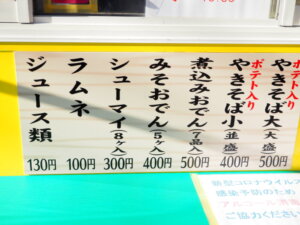 ポテト入り
やきそば大(大盛) 500円
ポテト入り
やきそば小(並盛) 400円
煮込みおでん(7品入) 500円
みそおでん(5ヶ入) 400円
シューマイ(8ヶ入) 300円
ラムネ 100円
ジュース類 130円
新型コロナウイルス
感染予防のため
アルコール消毒
ご協力ください